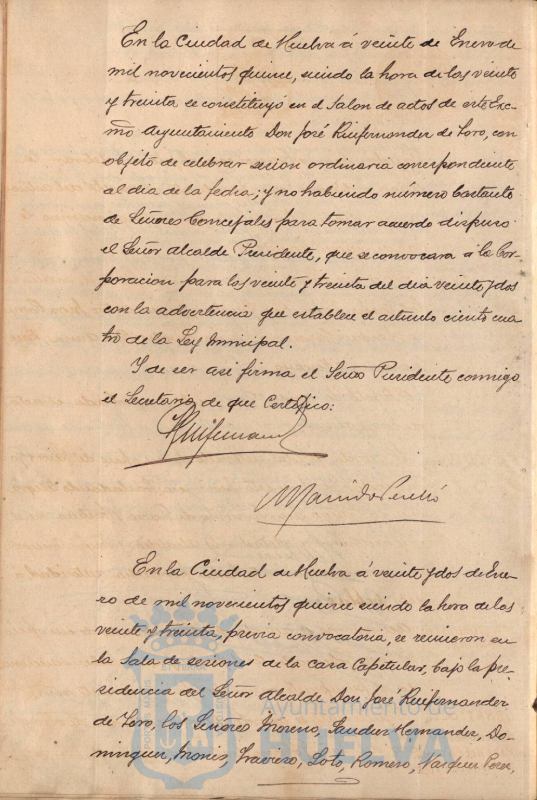 En la Ciudad de Huelva á veinte de Enero de
mil novecientos quince, siendo la hora de las veinte
y treinta se constituyó en el Salon de actos de este Exc
mo Ayuntamiento Don José Ruifernandez de Toro, con
objeto de celebrar sesion ordinaria correspondiente
al dia de la fecha; y no habiendo número bastante
de Señores Concejales para tomar acuerdo dispuso
el Señor Alcalde Presidente, que se convocara á la Cor-
poracion para las veinte y treinta del dia veinte y dos
con la advertencia que establece el articulo ciento cua
tro de la Ley Municipal.
Y de ser asi firma el Señor Presidente conmigo
el Secretario de que Certifico:
Ruifernandez
En la Ciudad de Huelva á veinte y dos de Ene-
ro de mil novecientos quince siendo la hora de las
veinte y treinta, previa convocatoria, se reunieron en
la Sala de sesiones de la casa Capitular, bajo la pre-
sidencia del Señor Alcalde Don José Ruifernandez
de Toro, los Señores Moreno, Sanchez Hernandez, Do-
minguez, Monis, Traviero, Soto, Romero, Vazquez Perez,
Ayuntamiento de
HUELVA